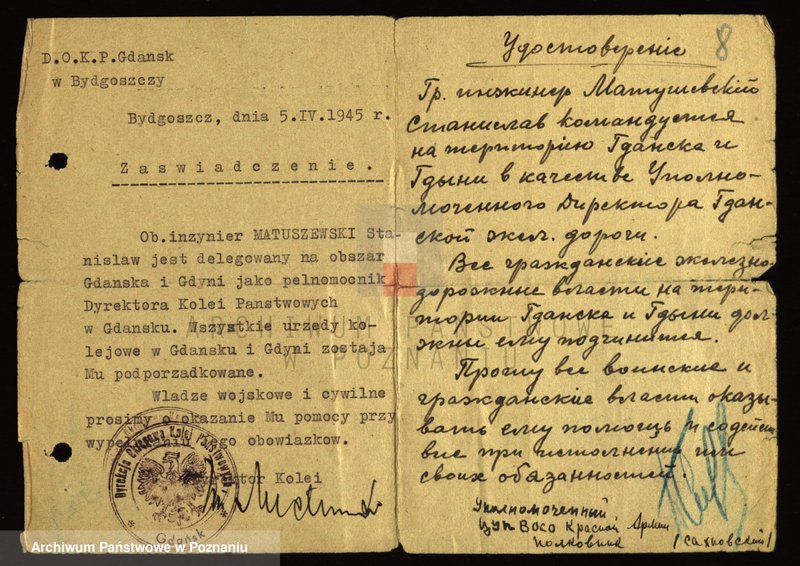 D.O.K.P.Gdańsk
w Bydgoszczy
Bydgoszcz, dnia 5.IV.1945 r.
Zaswiadczenie.
Ob.inzynier MATUSZEWSKI Sta-
nislaw jest delegowany na obszar
Gdanska i Gdyni jako pelnomocnik
Dyrektora Kolei Panstwowych
w Gdansku. Wszystkie urzędy ko-
lejowe w Gdansku i Gdyni zostają
Mu podporządkowane.
Wladze wojskowe i cywilne
prosimy o okazanie Mu pomocy przy
Jego obowiazkow.
Kolei
Dyrekcja Okręgowa Kolei Państwowych
Gdańsk
8
Удостоверенiе
Гр. инжинер Матушевскiй
Станислав командуется
на територiю Гданска и
Гдыни в качестве Уполно-
моченного Директора Гдан-
ской жел. дороги.
Все гражданскiе железно-
дорожные власти на тери-
тории Гданска и Гдыни дол-
жны ему подчинится.
Прошу все воинские и
гражданские власти оказы-
вать ему помощь и содейст
вие при исполнении им
своих обязанностей.
Уполномоченный
ЦУП ВОСО Красной Армии
полковник /Сахновский/
ARCHIWUM PAŃSTWOWE
W POZNANIU
Archiwum Państwowe w Poznaniu